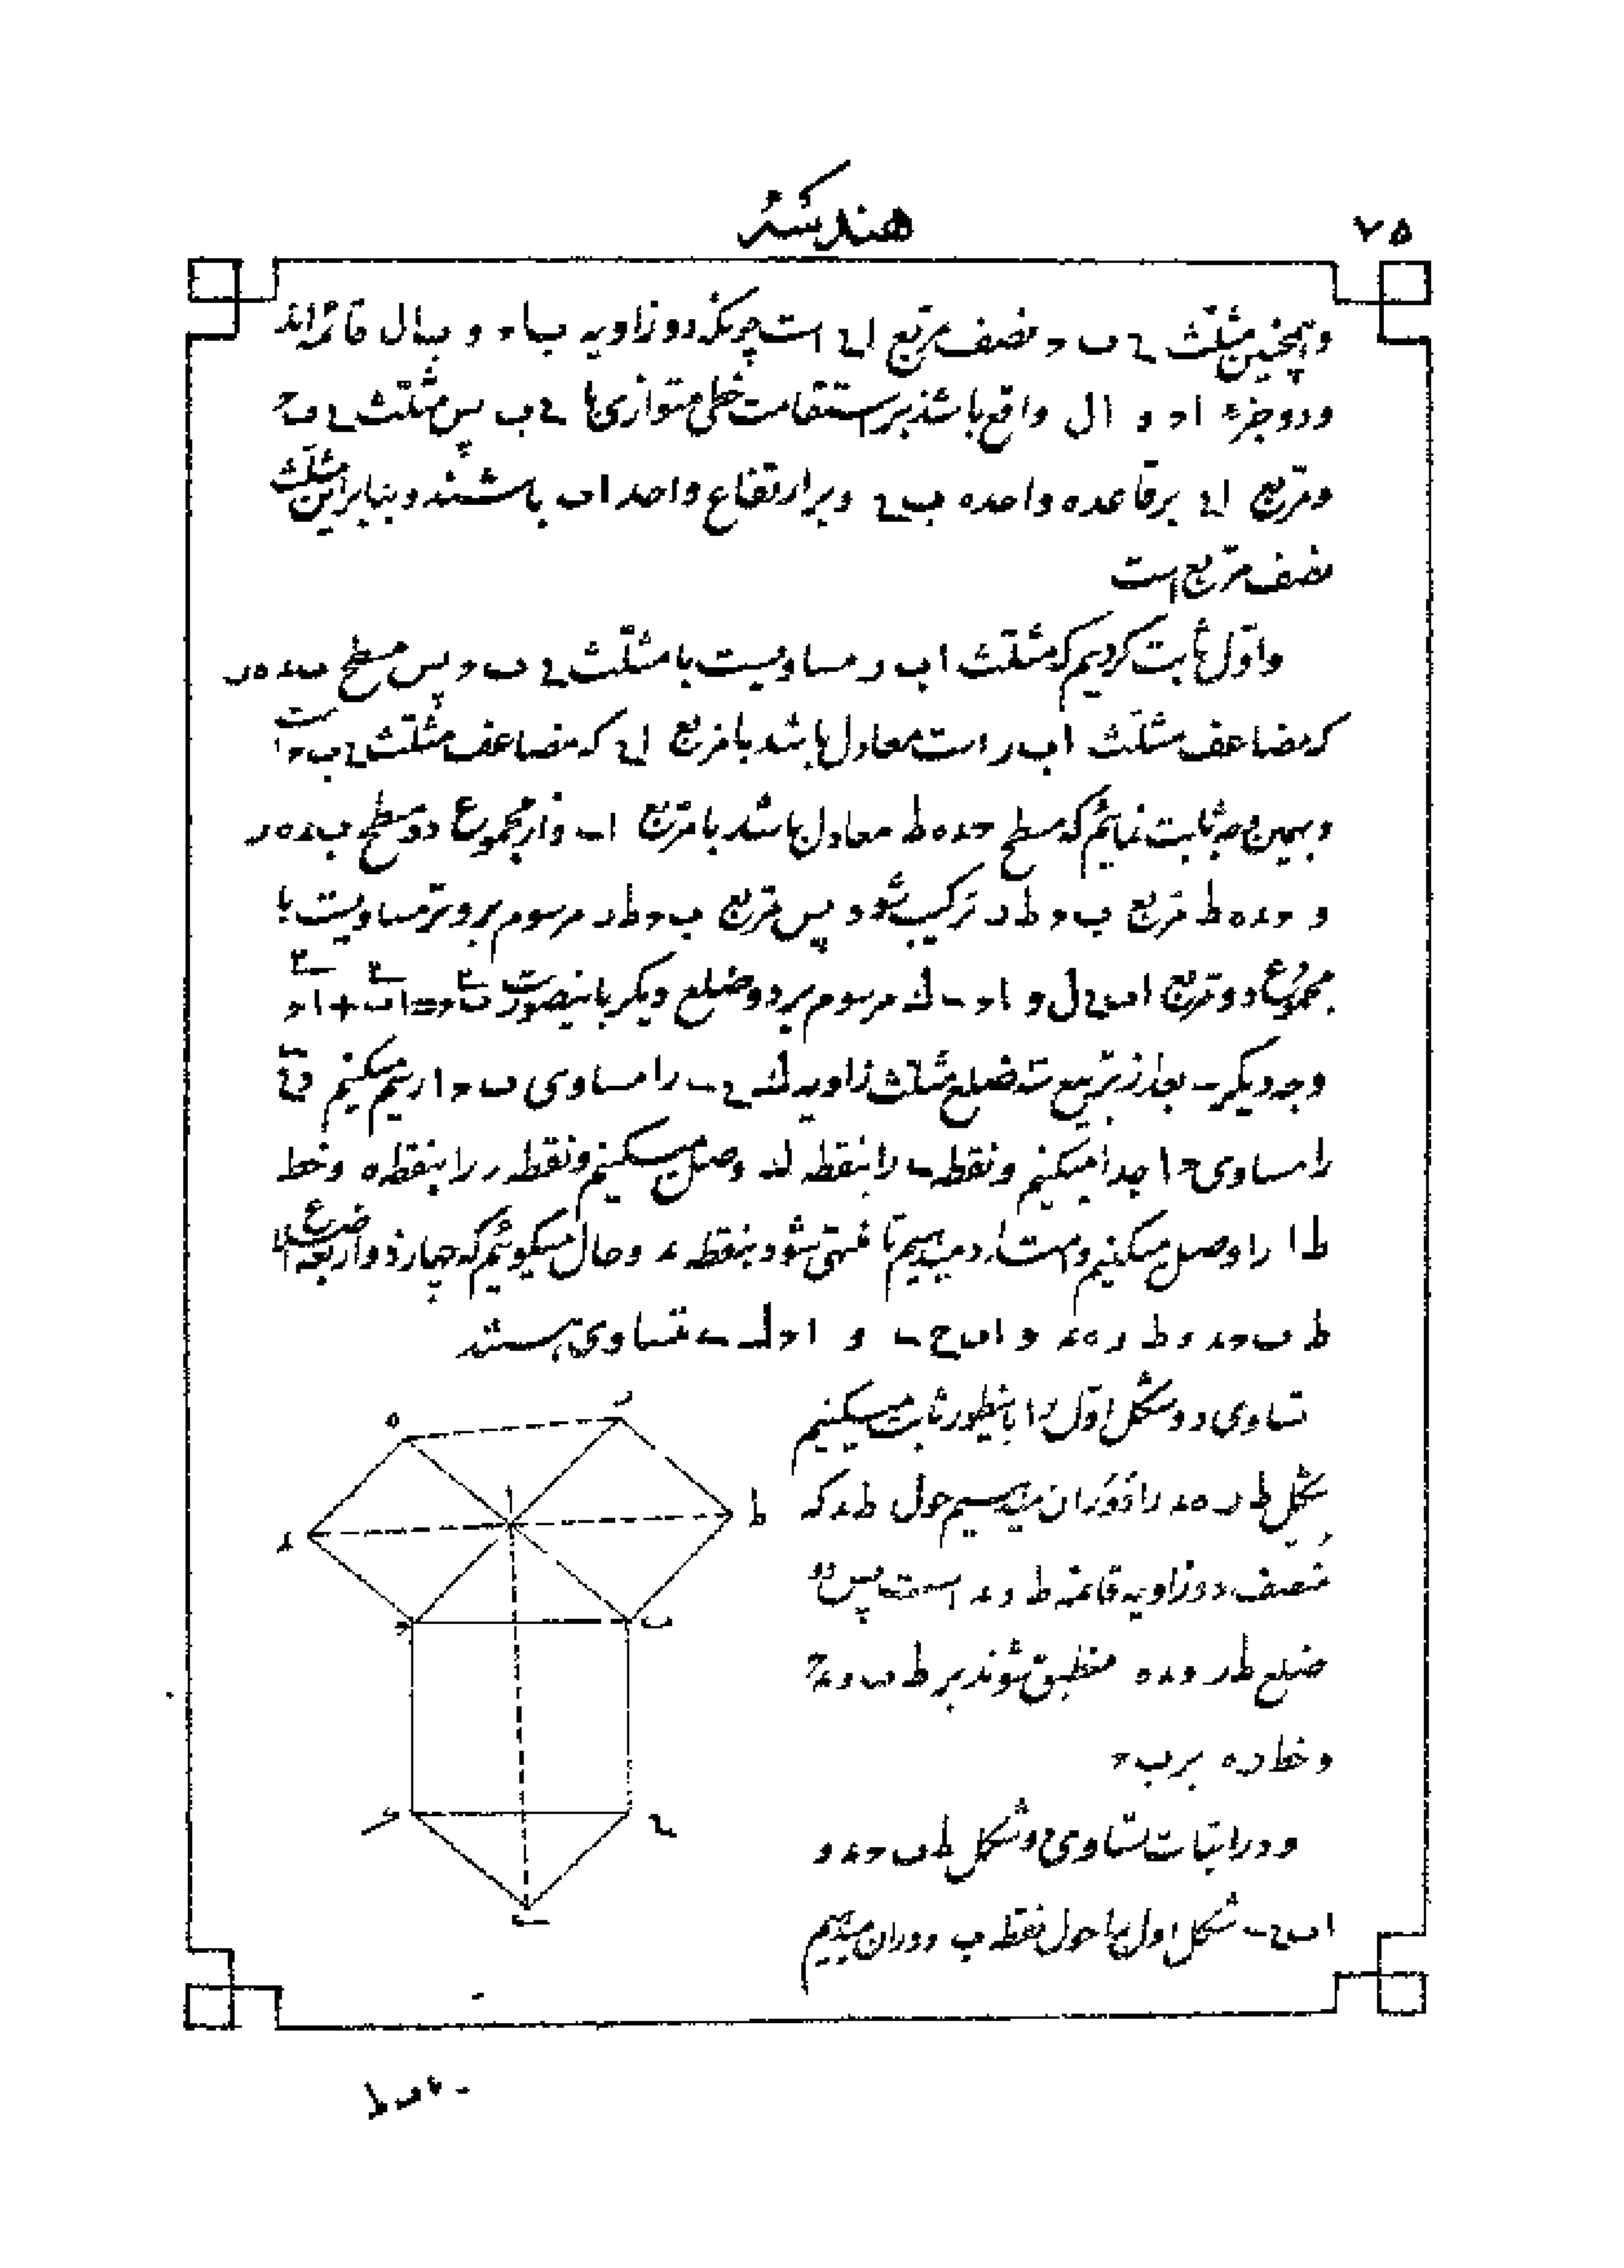 ۷۵
هندسه
و همچنین مثلّث ح ب ح نصف مربّع اح است چونکه دو زاویه ب ا ح و ب ا ل قائمه‌اند
و دو جزء ا ح و ا ل واقع باشند بر استقامت خطی متوازی با ح ب پس مثلّث ح ب ح
و مربّع اح بر قاعده واحده ب ح و بر ارتفاع واحد ا ب باشند و بنابراین مثلّث
نصف مربّع است
و اوّل ثابت کردیم که مثلّث ا ب ر مساویست با مثلّث ح ب ح پس سطح ب د ه ر
که مضاعف مثلّث ا ب ر است معادل باشد با مربّع اح که مضاعف مثلّث ح ب ح است
و بهمین وجه ثابت نمائیم که سطح ح د ه ط معادل باشد با مربّع ا ـ و از مجموع دو سطح ب د ه ر
و ح د ه ط مربّع ب ح ط ر ترکیب شود پس مربّع ب ح ط ر مرسوم بر وتر مساویست با
مجموع دو مربّع ا ب ح ل و ا ح ـ ک مرسوم بر دو ضلع دیگر باینصورت ب ح = ا ب + ا ح
وجه دیگر ـ بعد از تربیع سه ضلع مثلّث زاویه ک ح ـ را مساوی ب ح ا رسم میکنیم و ح ی
را مساوی ح ا جدا میکنیم و نقطه ی را بنقطه ک وصل میکنیم و نقطه ر را بنقطه ه و خط
ط ا را وصل میکنیم و امتداد میدهیم تا منتهی شود بنقطه د و حال میگوئیم که چهار ذو اربعة الاضلاع
ط ب ح د و ط ر ه د و ا ب ح ی و ا ح ک ی متساوی هستند
تساوی دو شکل اوّل را باینطور ثابت میکنیم
شکل ط ر ه د را دَوَران میدهیم حول ط د که
منصف دو زاویه قائمه ط و د است پس دو
ضلع ط ر و د ه منطبق شوند بر ط ب و د ح
و خط ر ه بر ب ح
و در اثبات تساوی دو شکل ط ب ح د و
ا ب ح ی شکل اول را حول نقطه ب دوران میدهیم
ر
ه
ا
ط
د
ب
ح
ک
ح
ی